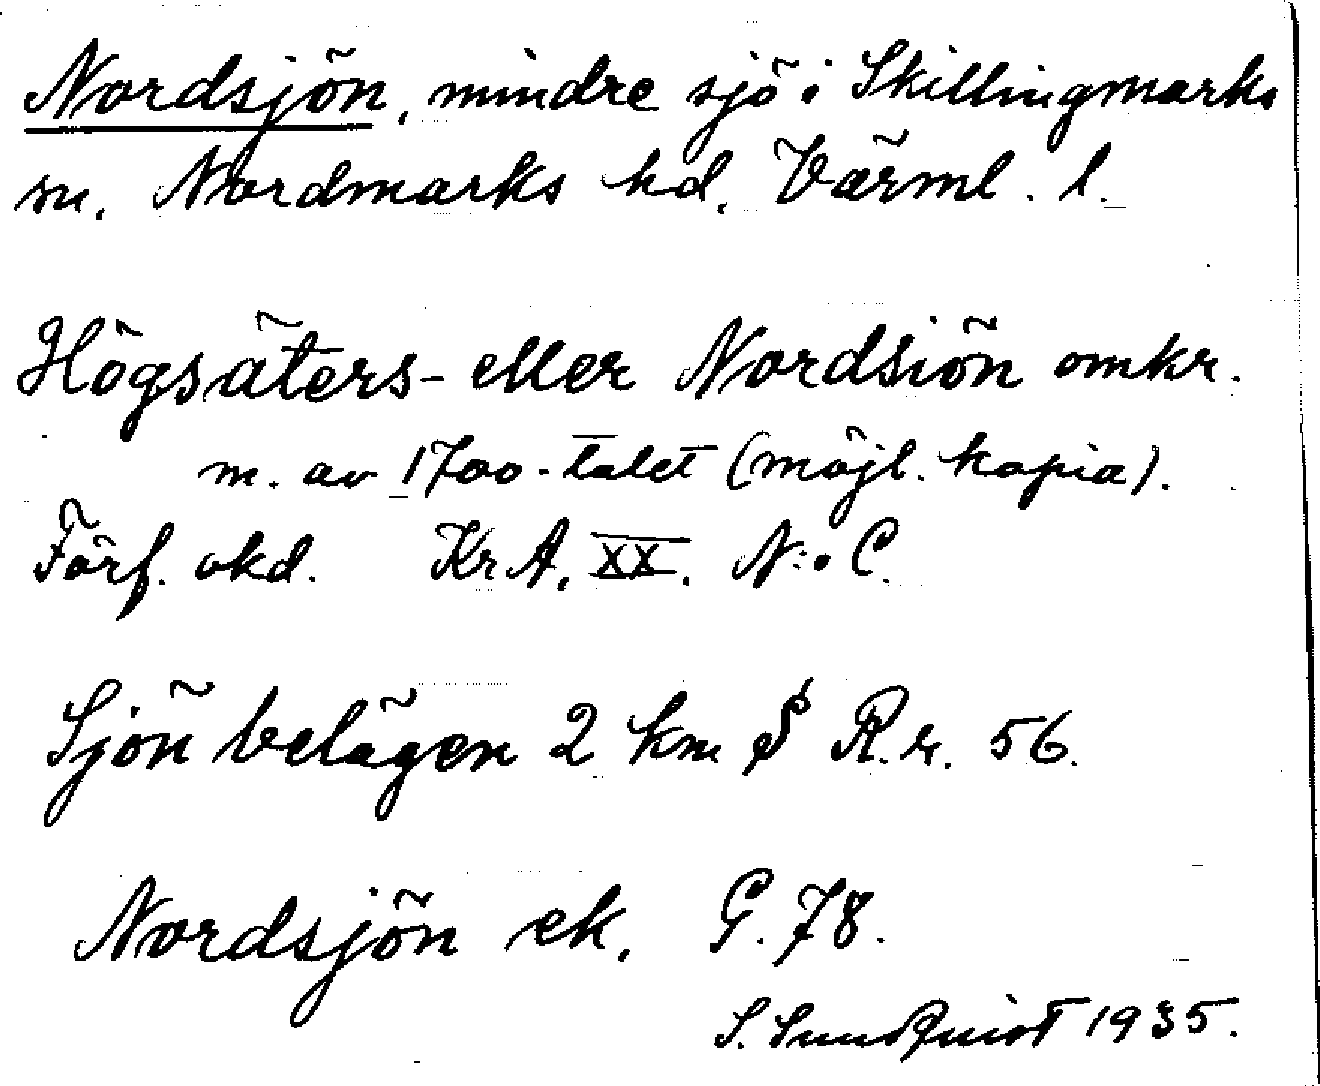 Nordsjön, mindre sjö i Skillingmarks
sn. Nordmarks hd. Värml. l.
Högsäters- eller Nordsiön omkr.
m. av 1700-talet (möjl. kopia).
Förf. okd. KrA. XX. N:o C.
Sjön belägen 2 km S R.r. 56.
Nordsjön ek. G. 78.
S. Sundquist 1935.